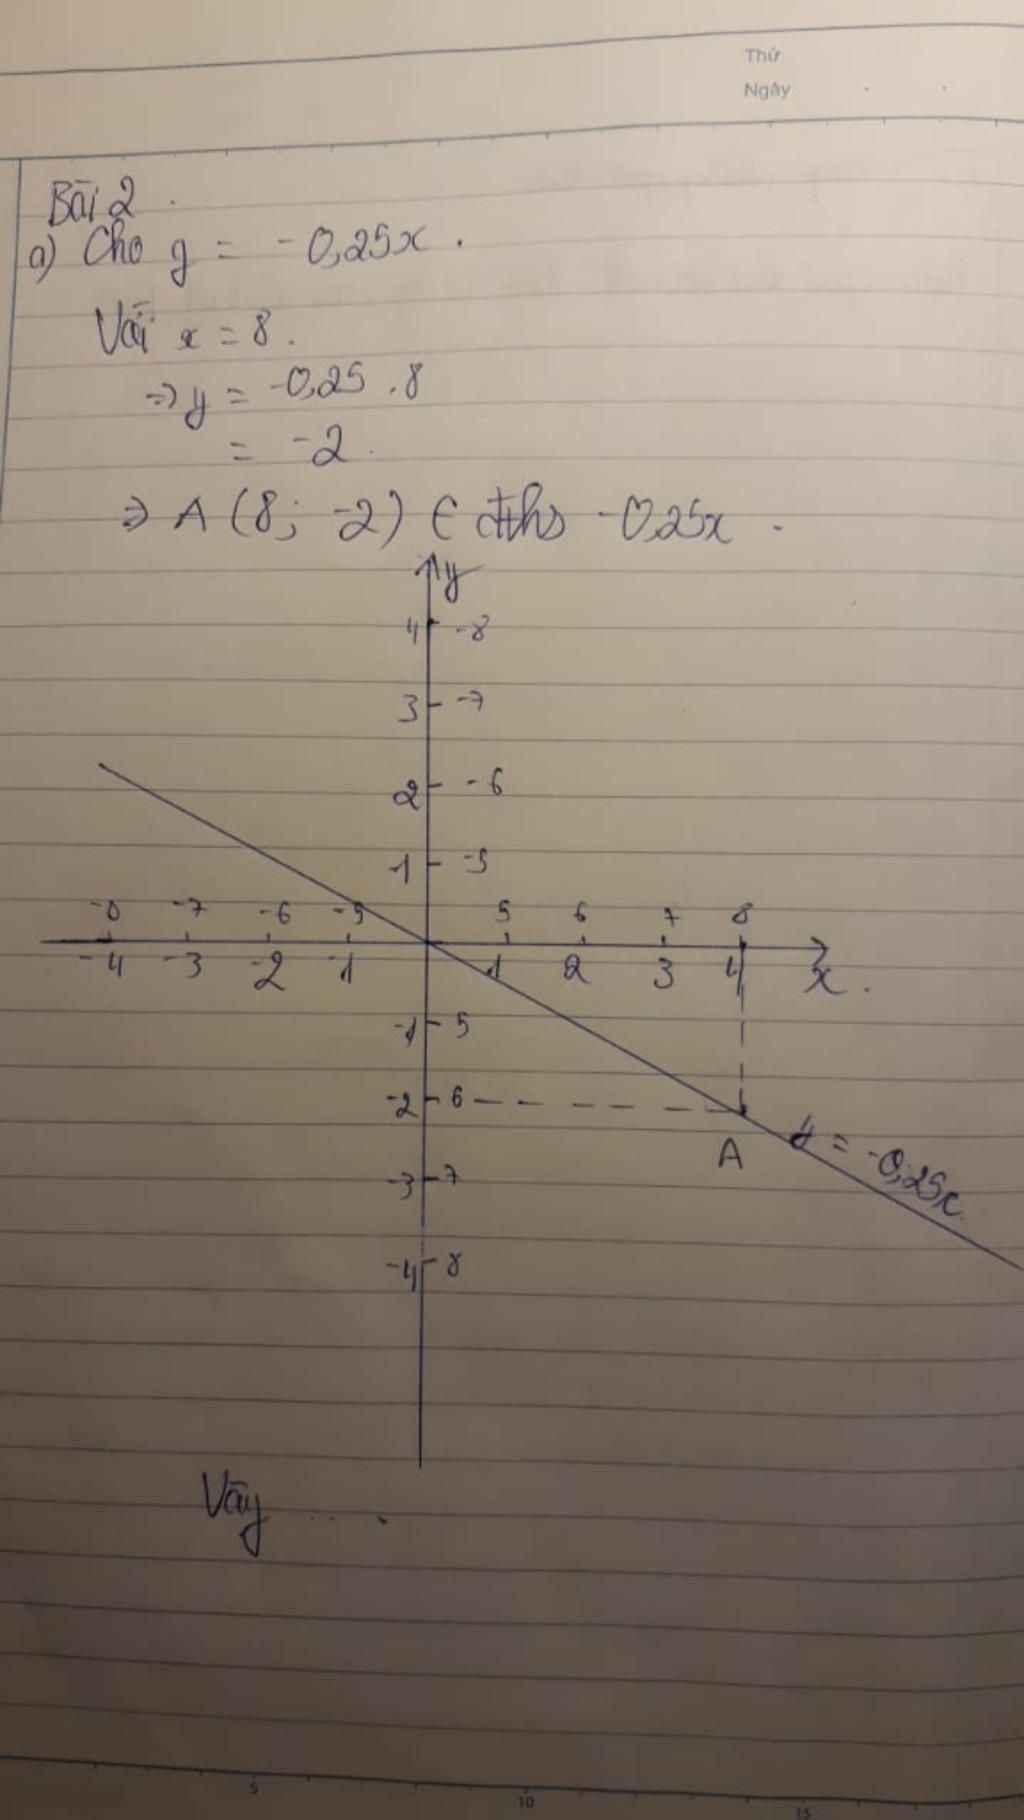 Thứ
Ngày
Bài 2.
a) Cho y = -0,25x.
Với x = 8.
=> y = -0,25 . 8
= -2.
=> A (8; -2) ∈ đths -0,25x.
y
4 -8
3 -7
2 -6
1 -5
-8 -7 -6 -5 5 6 7 8
-4 -3 -2 -1 1 2 3 4 x.
-1 5
-2 6
A y = -0,25x.
-3 7
-4 8
Vậy ....
5 10 15